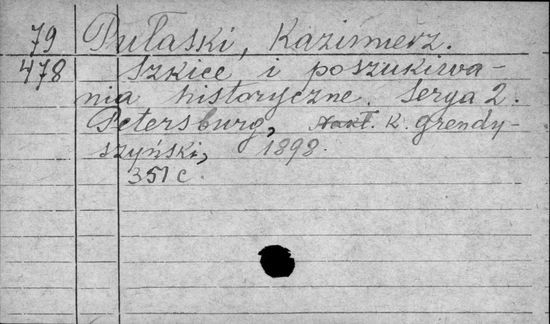 79 Pułaski, Kazimierz.
478 Szkice i poszukiwa-
nia historyczne. Serya 2.
Petersburg, Nakł. K. Grendy-
szyński, 1898.
351 c.